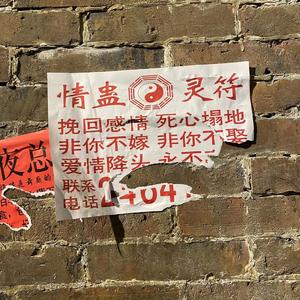 情蛊 灵符
挽回感情 死心塌地
非你不嫁 非你不娶
爱情降头 永不
联系
电话 2404
夜总